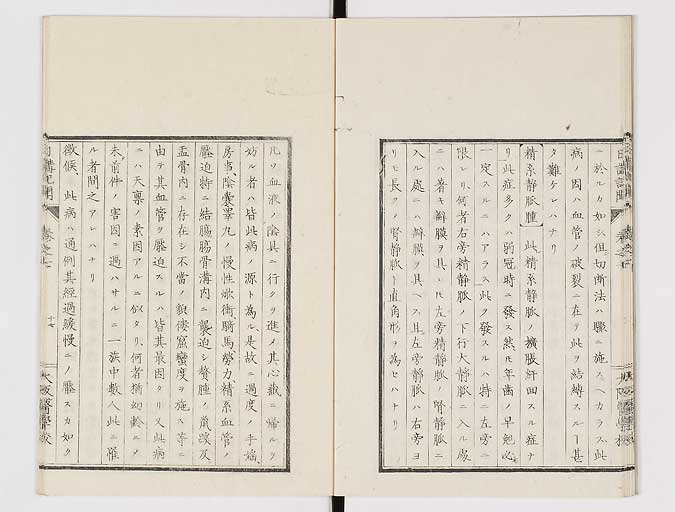 ニ於ルカ如シ但切断法ハ驟ニ施スヘカラス此
病ノ因ハ血管ノ破裂ニ在テ此ヲ結縛スルヿ甚
タ難ケレハナリ
精系静脈腫 此精系静脈ノ擴脹紆回スル症ナ
リ此症多クハ弱冠時ニ發ス然𪜈年歯ノ早勉必
一定スルニハアラス此ヲ發スルハ特ニ左旁ニ
限レリ何者右旁精静脈ノ下行大静脈ニ入ル處
ニハ著キ瓣膜ヲ具レ𪜈左旁精静脈ノ腎静脈ニ
入ル處ニハ瓣膜ヲ具ヘス且左旁静脈ハ右旁ヨ
リモ長クノ腎静脈ト直角形ヲ為セハナリ
凡ソ血液ノ陰具ニ行クヲ進メ其心臓ニ帰ルヲ
妨ル者ハ皆此病ノ源ト為ル是故ニ過度ノ手婬
房事陰嚢睾丸ノ慢性焮衝騎馬勞力精系血管ノ
壓迫特ニ結腸腸骨溝内ニ襲迫シ贅腫ノ
盂骨内ニ存在シ不當ノ ヲ施ス等ニ
由テ其血管ヲ壓迫スルハ皆其最因タリ又此病
ニハ天禀ノ素因アルニ似タリ何者猶幼齢ニノ
未前件ノ害因ニ遇ハサルニ一族中數人此ニ罹
ル者間之アレハナリ
徴候 此病ハ通例其經過緩慢ニノ壓スカ如ク
日講記聞 巻之七 十七 大阪醫學校